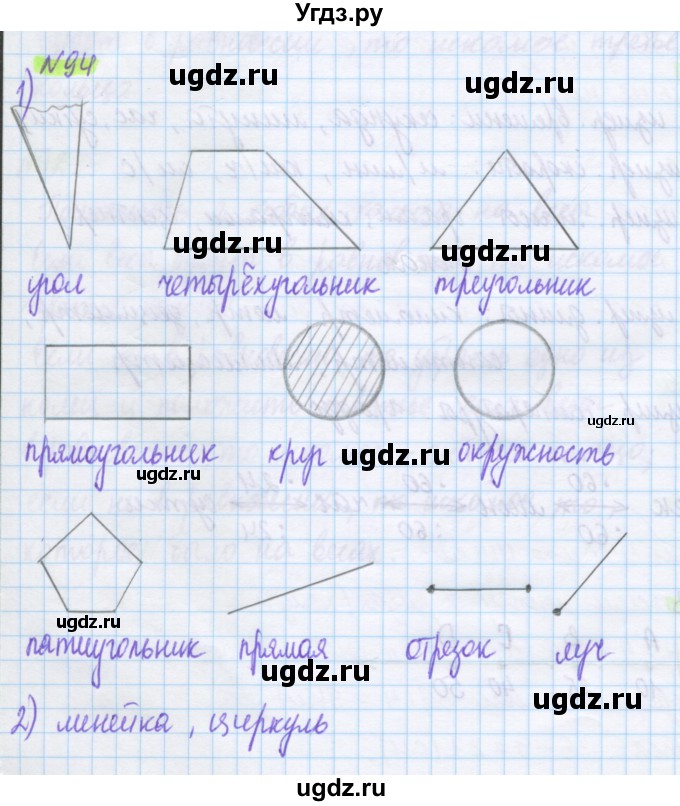 Угдз.ру
№94
ugdz.ru
ugdz.ru
1)
ugdz.ru
ugdz.ru
угол четырёхугольник треугольник
ugdz.ru
прямоугольник круг окружность
ugdz.ru
ugdz.ru
ugdz.ru
пятиугольник прямая отрезок луч
ugdz.ru
ugdz.ru
2) линейка, циркуль
ugdz.ru